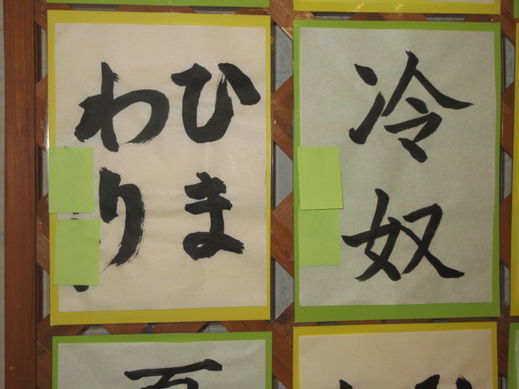 ひま
わり
冷奴